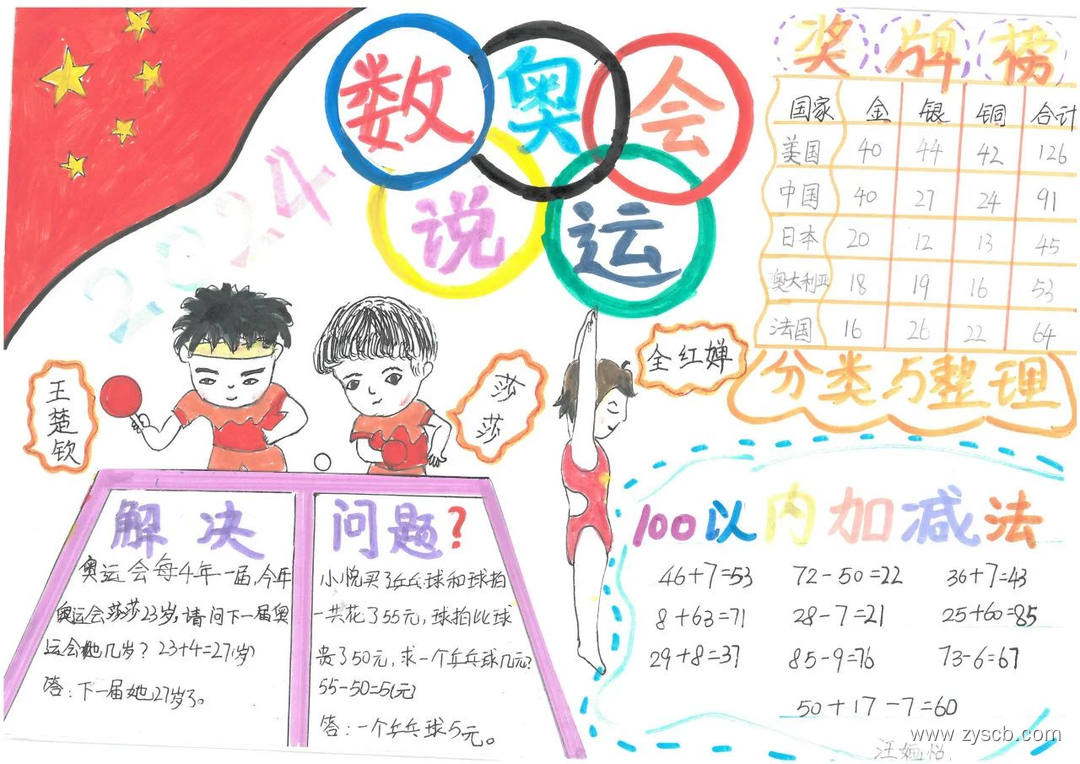 数奥会
说运
2024
奖牌榜
国家 金 银 铜 合计
美国 40 44 42 126
中国 40 27 24 91
日本 20 12 13 45
澳大利亚 18 19 16 53
法国 16 26 22 64
分类与整理
王楚钦
莎莎
全红婵
解决问题?
奥运会每4年一届,今年
奥运会莎莎23岁,请问下一届奥
运会她几岁? 23+4=27(岁)
答:下一届她27岁了。
小悦买了乒乓球和球拍
一共花了55元,球拍比球
贵了50元,求一个乒乓球几元?
55-50=5(元)
答:一个乒乓球5元。
100以内加减法
46+7=53 72-50=22 36+7=43
8+63=71 28-7=21 25+60=85
29+8=37 85-9=76 73-6=67
50+17-7=60
www.zyscb.com